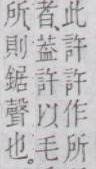 此許許作所
者葢許以毛
所則鋸聲也。